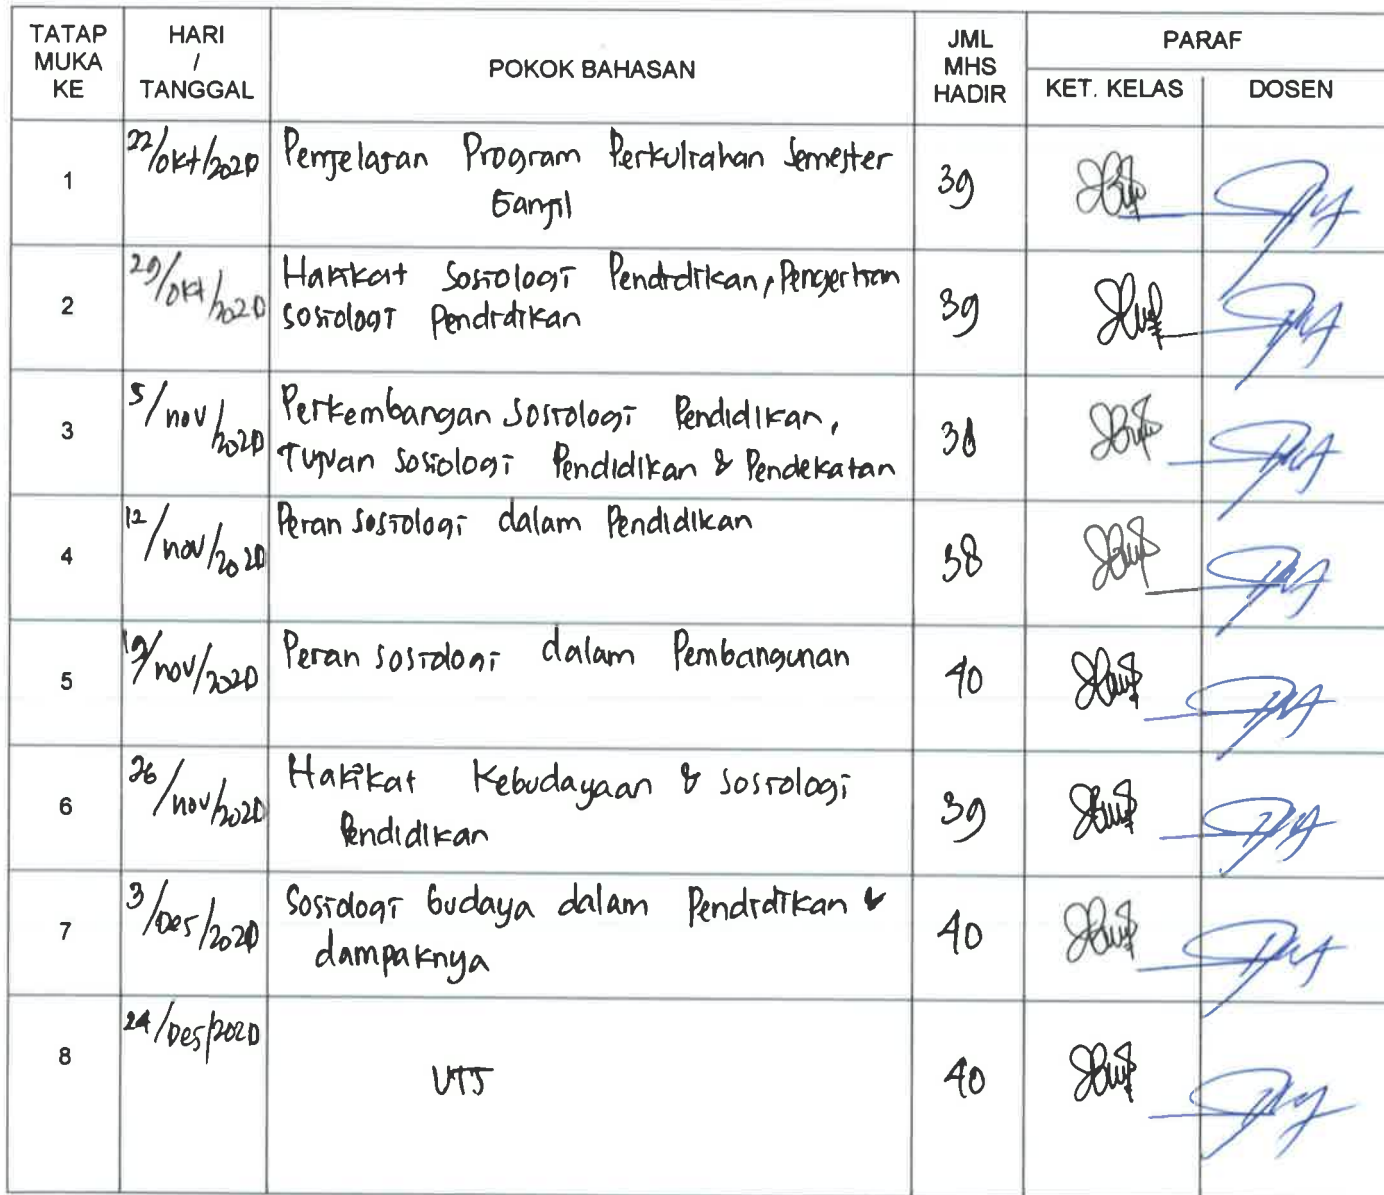 TATAP MUKA KE
HARI / TANGGAL
POKOK BAHASAN
JML MHS HADIR
PARAF
KET. KELAS
DOSEN
1
22/okt/2020
Penjelasan Program Perkuliahan Semester
Ganjil
39
2
29/okt/2020
Hakikat Sosiologi Pendidikan, Pengertian
sosiologi Pendidikan
39
3
5/nov/2020
Perkembangan Sosiologi Pendidikan,
Tujuan Sosiologi Pendidikan & Pendekatan
38
4
12/nov/2020
Peran Sosiologi dalam Pendidikan
38
5
19/nov/2020
Peran sosiologi dalam Pembangunan
40
6
26/nov/2020
Hakikat Kebudayaan & sosiologi
Pendidikan
39
7
3/Des/2020
Sosiologi budaya dalam Pendidikan &
dampaknya
40
8
24/Des/2020
UTS
40